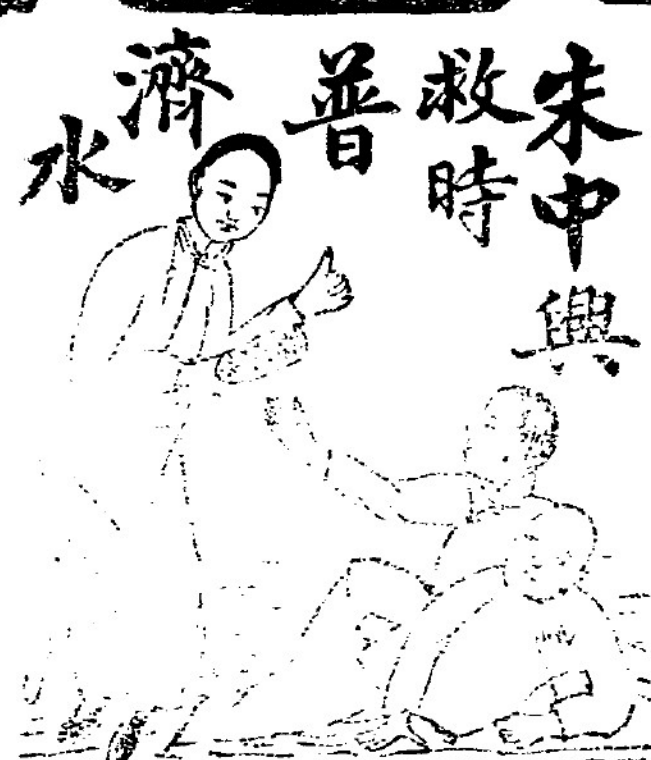 朱中興
救時
普
濟
水